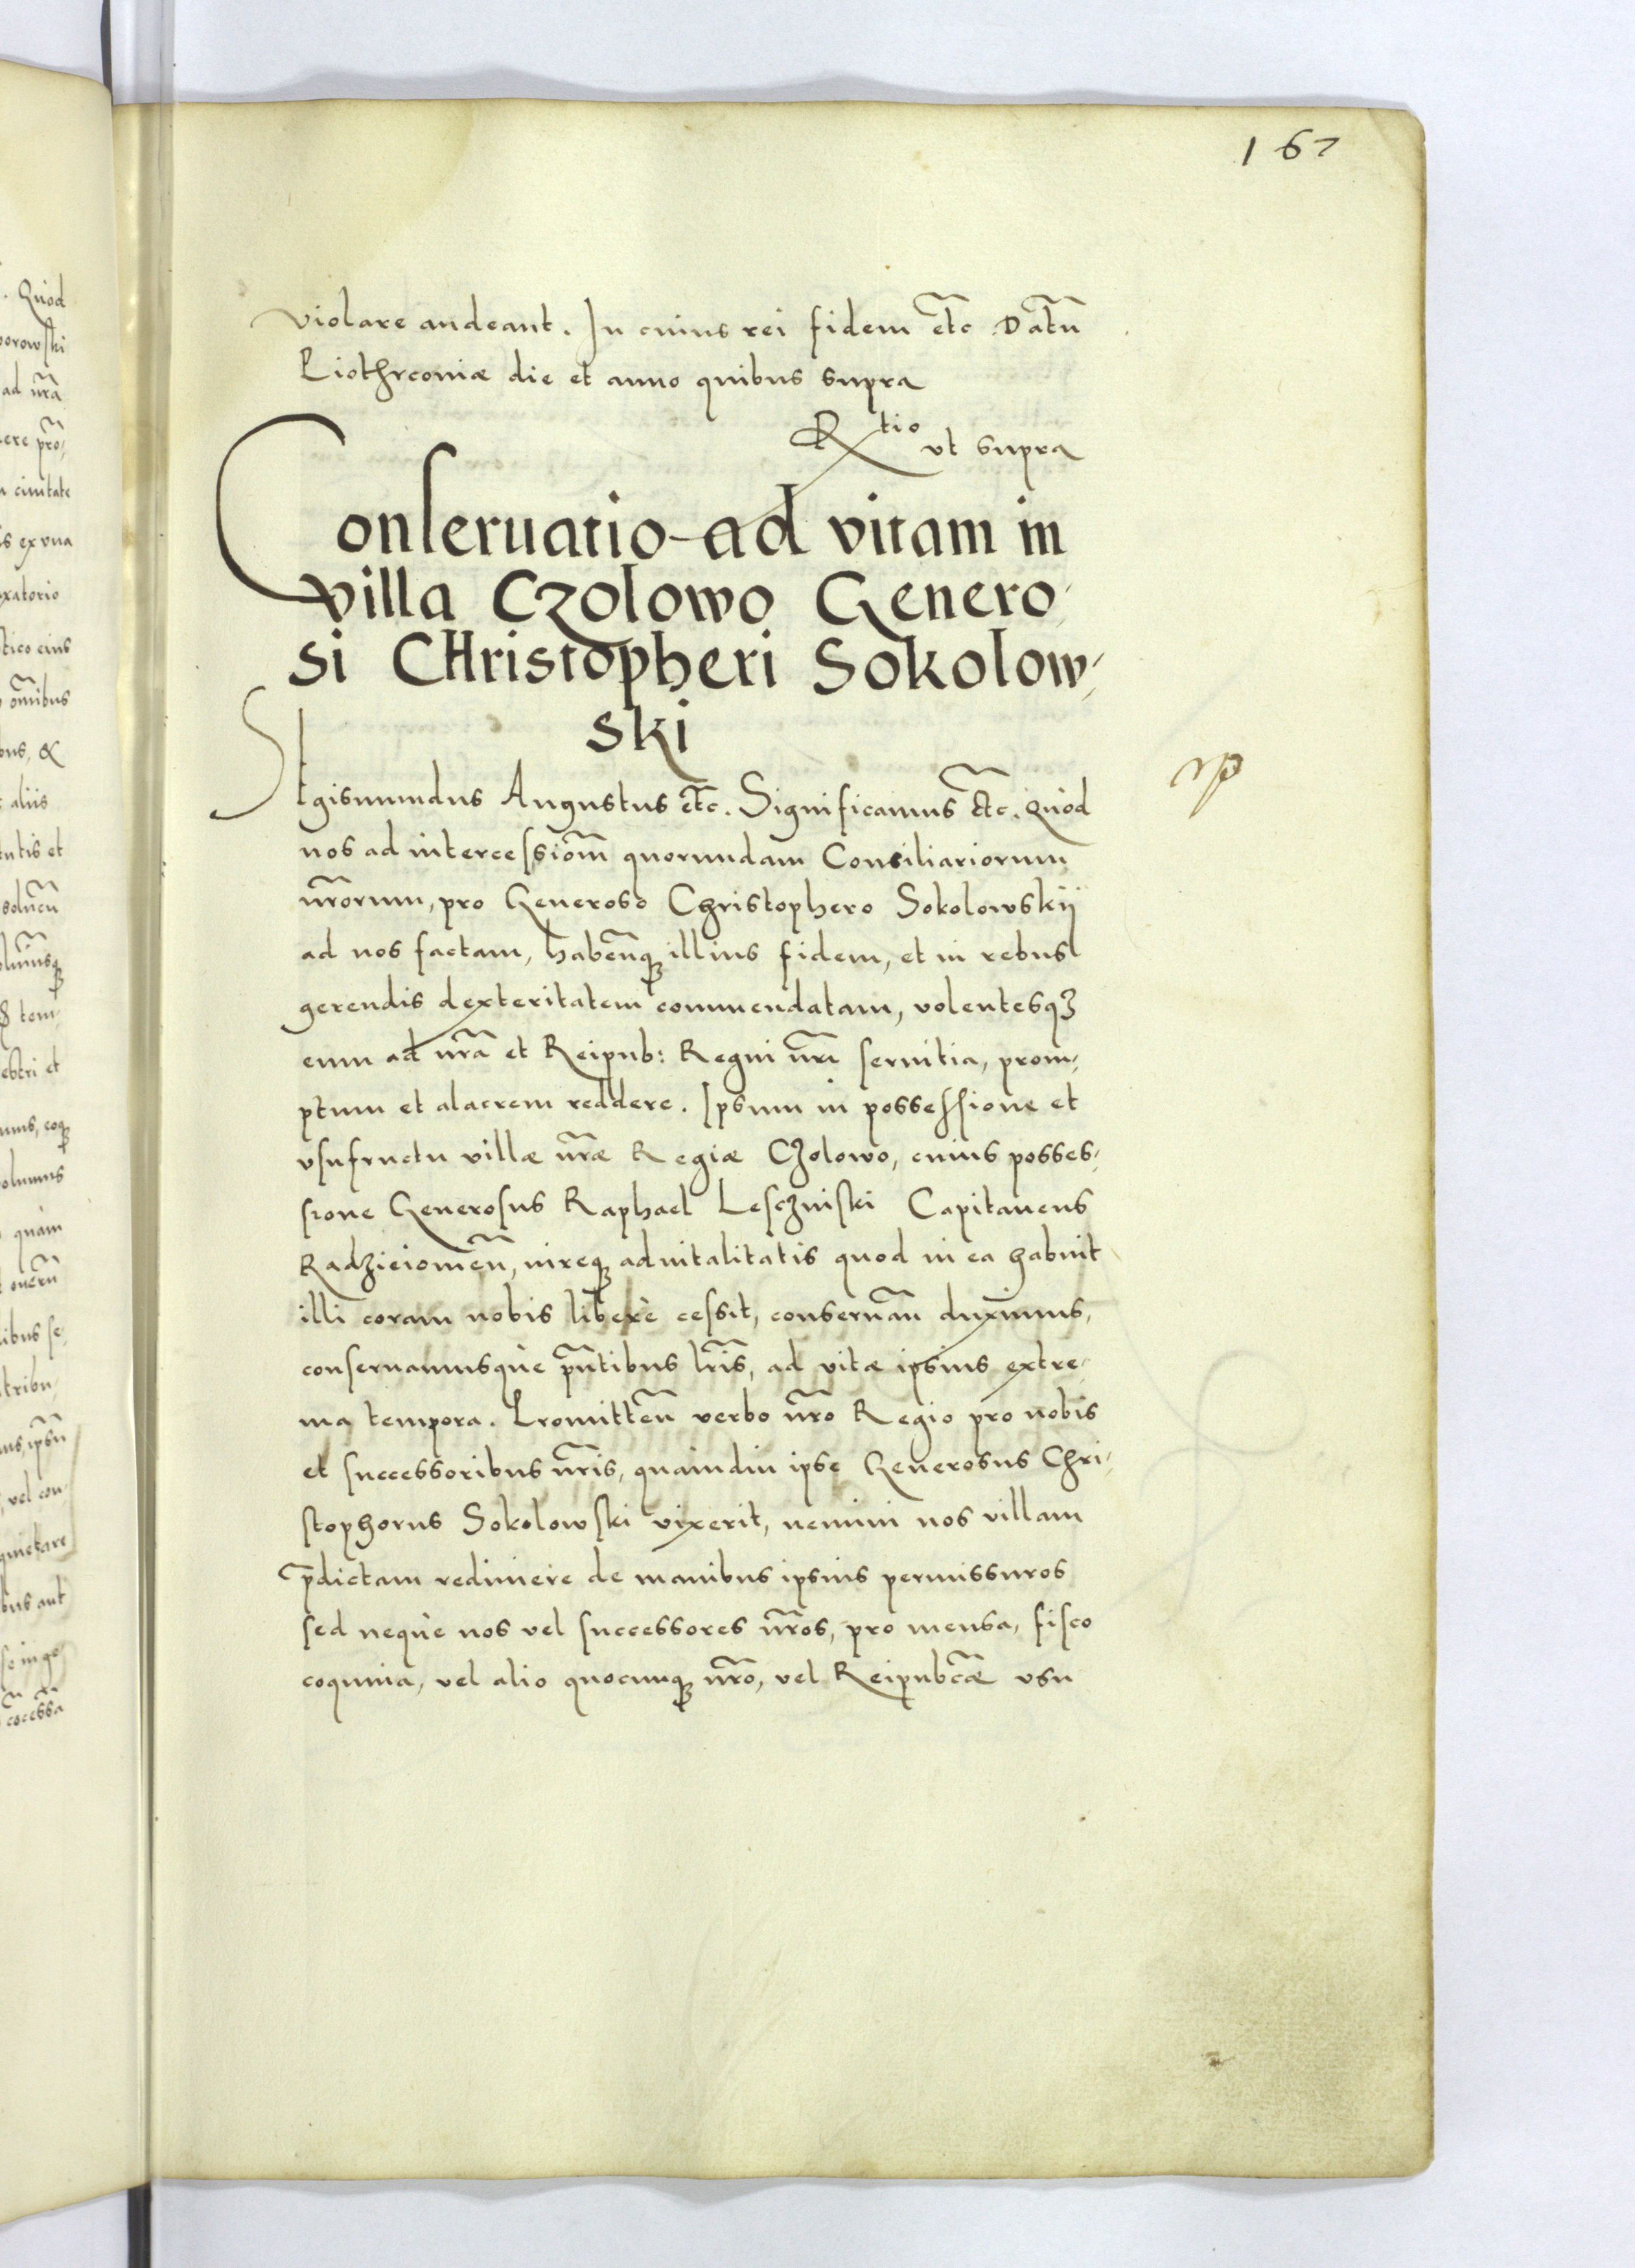 167
violare audeant. In cuius rei fidem etc̃ Datũ
Piothrconiæ die et anno quibus supra
Rtio vt supra
Conseruatio ad vitam in
villa Czolowo Genero-
si CHristopheri Sokolow-
ski
Sigismundus Augustus etc. Significamus etc̃. Quòd
rp
nos ad intercessioñm quorundam Consiliariorum
nr̃orum, pro Generoso Christophero Sokolowskij
ad nos factam, habeñq illius fidem, et in rebus
gerendis dexteritatem commendatam, volentesqȝ
eum ad nr̃a et Reipub: Regni nr̃i seruitia, prom-
ptum et alacrem reddere. Ipsum in possessione et
vsufructu villæ nr̃æ Regiæ Czolowo, cuius posses-
sione Generosus Raphael Lesczniski Capitaneus
Radzieiomeñ, iureq aduitalitatis quod in ea habuit
illi coram nobis liberè cessit, conseruañ duximus,
conseruamusquè pñtibus lr̃is, ad vitæ ipsius extre-
ma tempora. Promitteñ verbo nr̃o Regio pro nobis
et successoribus nr̃is, quàmdiu ipse Generosus Chri-
stophorus Sokolowski vixerit, nemini nos villam
p̃dictam redimere de manibus ipsius permissuros
sed nequè nos vel successores nr̃os, pro mensa, fisco
coquina, vel alio quocunq nr̃o, vel Reipubcæ̃ vsu